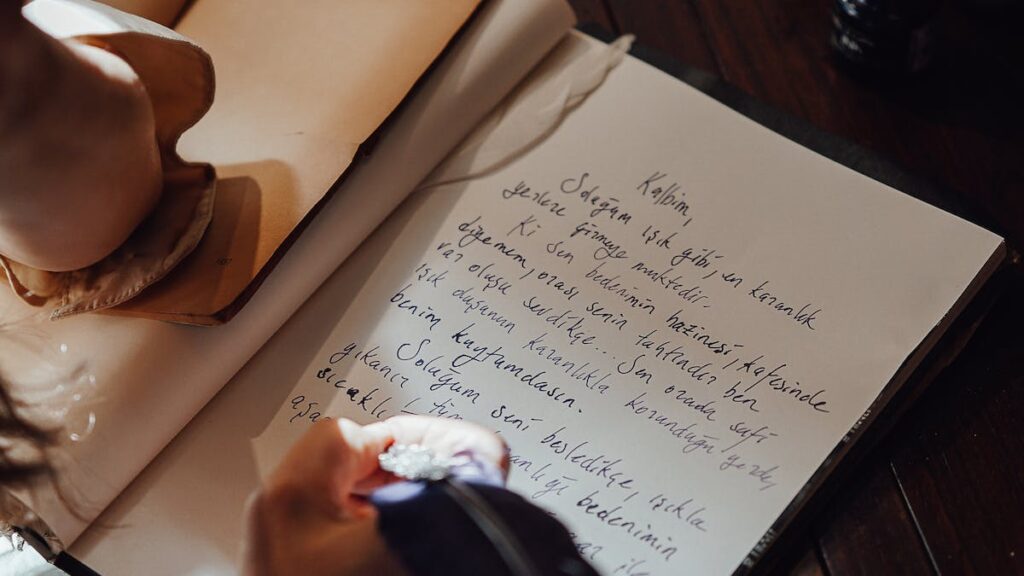 Kalbim,
Soluğum ışık gibi, en karanlık
yerlere girmeye muktedir.
Ki sen bedenimin hazinesi, kafesinde
diyemem, orası senin tahtındır ben
var oluşu sevdikçe... Sen orada safi
ışık düşünen karanlıkla korunduğu yerde,
benim kuytumdasın.
Soluğum seni besledikçe, ışıkla
yıkanır tüm bedenimin
sıcaklı
aşa ile